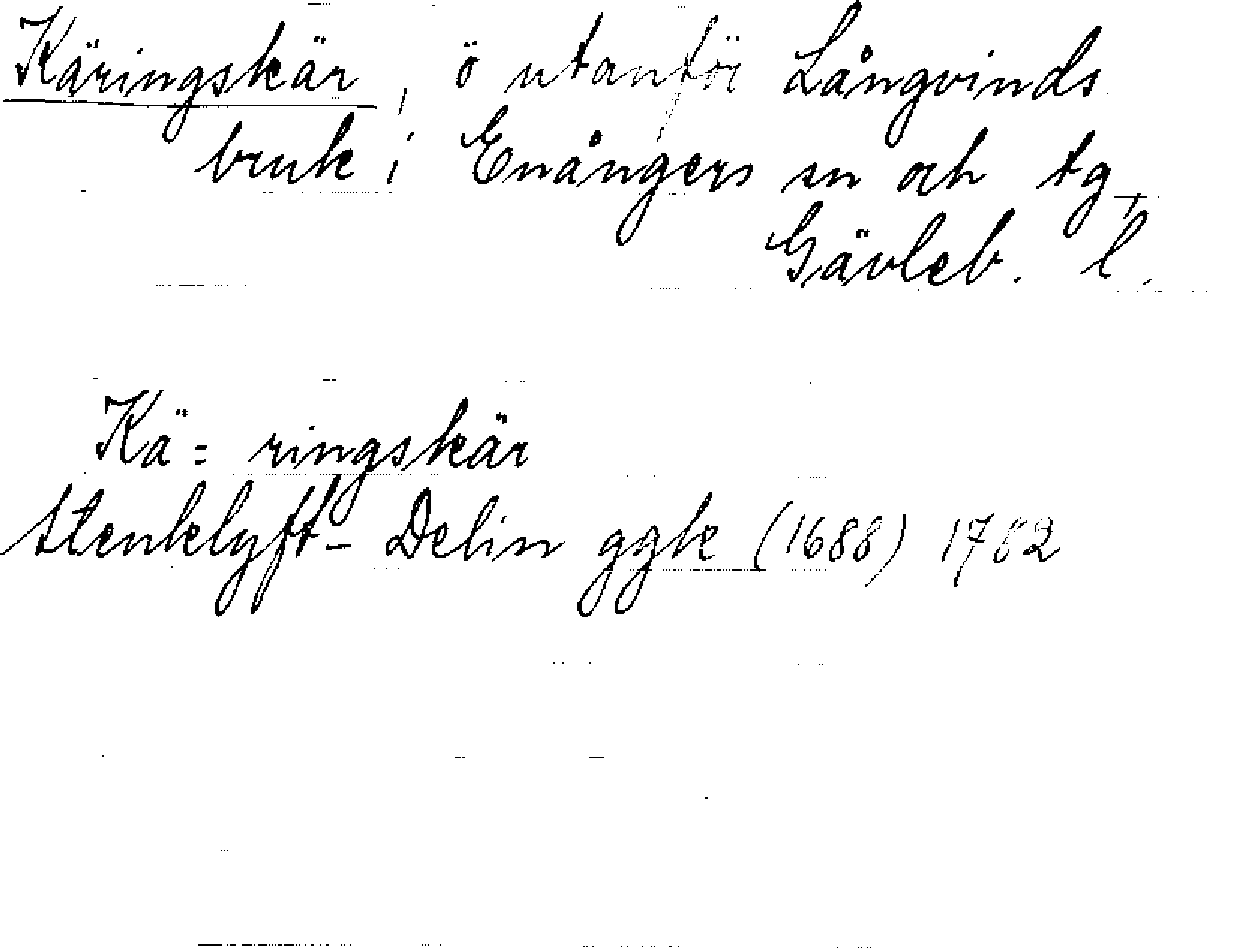 Käringskär, ö utanför Långvinds
bruk i Enångers sn och tg,
Gävleb. l.
Kä= ringskär
Stenklyft- Delin ggk (1688) 1782